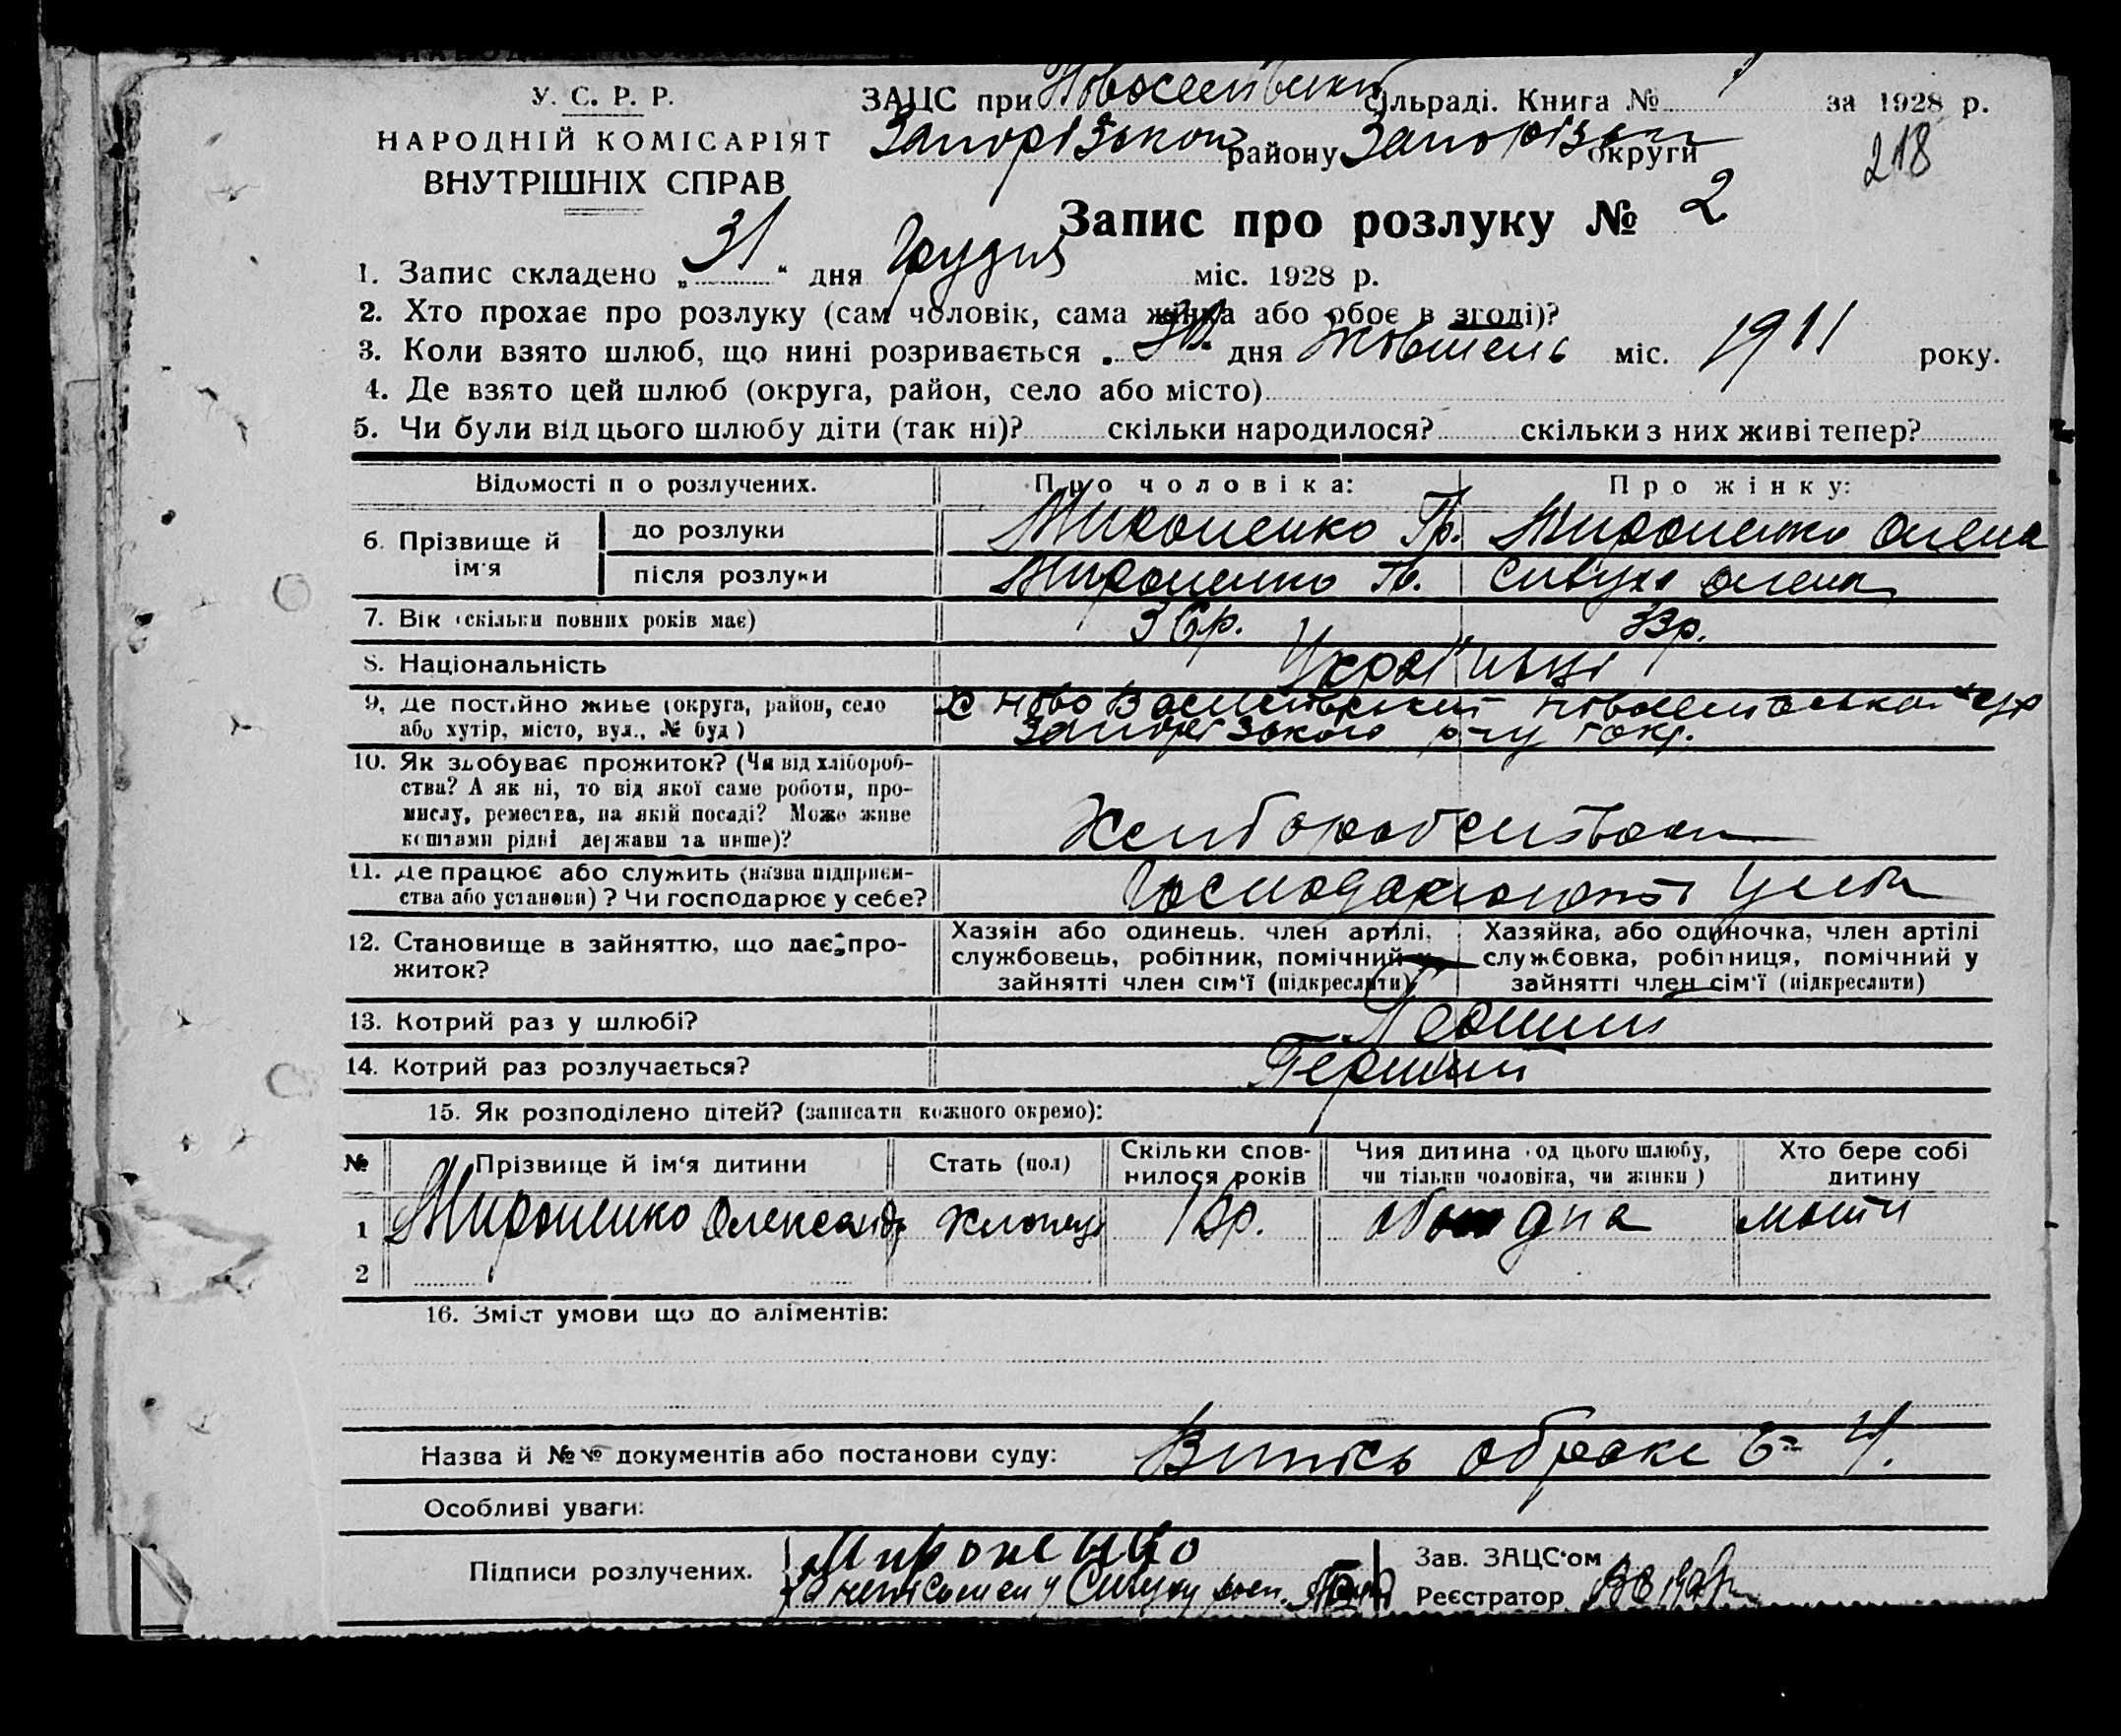 У. С. Р. Р.
НАРОДНІЙ КОМІСАРІЯТ
ВНУТРІШНІХ СПРАВ
ЗАЦС при сільраді. Книга № за 1928 р.
Запорізького району Запорізьк округи
218
Запис про розлуку № 2
1. Запис складено „31“ дня Грудня міс. 1928 р.
2. Хто прохає про розлуку (сам чоловік, сама жінка або обоє в згоді)?
3. Коли взято шлюб, що нині розривається „ дня Жовтень міс. 1911 року.
4. Де взято цей шлюб (округа, район, село або місто)
5. Чи були від цього шлюбу діти (так ні)? скільки народилося? скільки з них живі тепер?
Відомості п о розлучених. Про чоловіка: Про жінку:
6. Прізвище й ім'я
до розлуки Мироненко Гр. Мироненко Олена
після розлуки Мироненко Гр. Сивуха Олена
7. Вік (скільки повних років має) 36р. 33р.
8. Національність Українці
9. Де постійно живе (округа, район, село або хутір, місто, вул., № буд)
х Ново
Запорізького р-ну і окр.
10. Як здобуває прожиток? (Чи від хлібороб-
ства? А як ні, то від якої саме роботи, про-
мислу, ремества, на якій посаді? Може живе
коштами рідні держави та инше)?
11. Де працює або служить (назва підприєм-
ства або установи)? Чи господарює у себе?
12. Становище в зайняттю, що дає про-
житок?
Хазяін або одинець. член артілі,
службовець, робітник, помічний у
зайнятті член сім'ї (підкреслити)
Хазяйка, або одиночка, член артілі
службовка, робітниця, помічний у
зайнятті член сім'ї (підкреслити)
13. Котрий раз у шлюбі? Перший
14. Котрий раз розлучається? Перший
15. Як розподілено дітей? (записати кожного окремо):
№ Прізвище й ім'я дитини Стать (пол) Скільки спов-
нилося років Чия дитина (од цього шлюбу,
чи тільки чоловіка, чи жінки) Хто бере собі
дитину
1 Мироненко Олександр хлопець мати
2
16. Зміст умови що до аліментів:
Назва й №№ документів або постанови суду: Випись
Особливі уваги:
Підписи розлучених. Мироненко
Зав. ЗАЦС'ом
Реєстратор